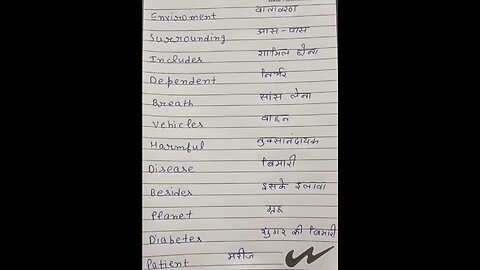 Enviroment वातावरण
Surrounding आस-पास
Includes शामिल होना
Dependent निर्भर
Breath सांस लेना
Vehicles वाहन
Harmful नुकसानदायक
Disease बिमारी
Besides इसके इलावा
Planet ग्रह
Diabetes शुगर की बिमारी
Patient मरीज